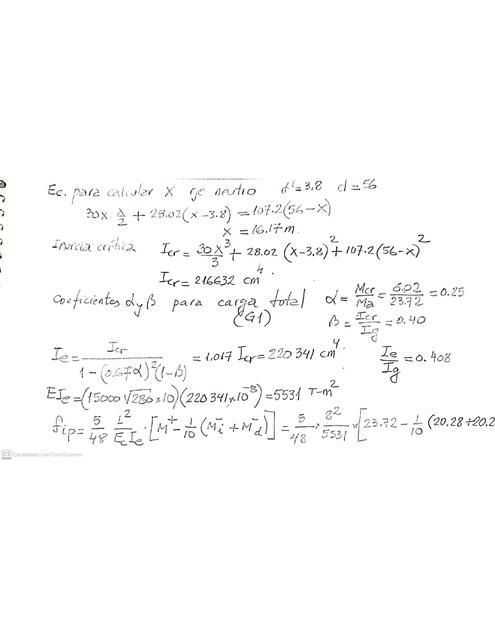 Ec. para calcular X eje neutro d'=3.8 d=56
30x x/2 + 28.02(x-3.8) = 107.2(56-x)
x = 16.17 m.
Inercia crítica Icr = 30x³/3 + 28.02 (x-3.8)² + 107.2(56-x)²
Icr = 216632 cm⁴.
Coeficientes α y β para carga total (G1) α = Mcr/Ma = 6.02/23.72 = 0.25
β = Icr/Ig = 0.40
Ie = Icr/(1-(0.67α)²(1-β)) = 1.017 Icr = 220341 cm⁴. Ie/Ig = 0.408
EIe = (15000√280 x10)(220341x10⁻⁸) = 5531 T-m²
fip = 5/48 L²/EcIe · [M⁺ - 1/10 (Mi⁻ + Md⁻)] = 5/48 x 8²/5531 x [23.72 - 1/10 (20.28+20.2
CS Escaneado con CamScanner